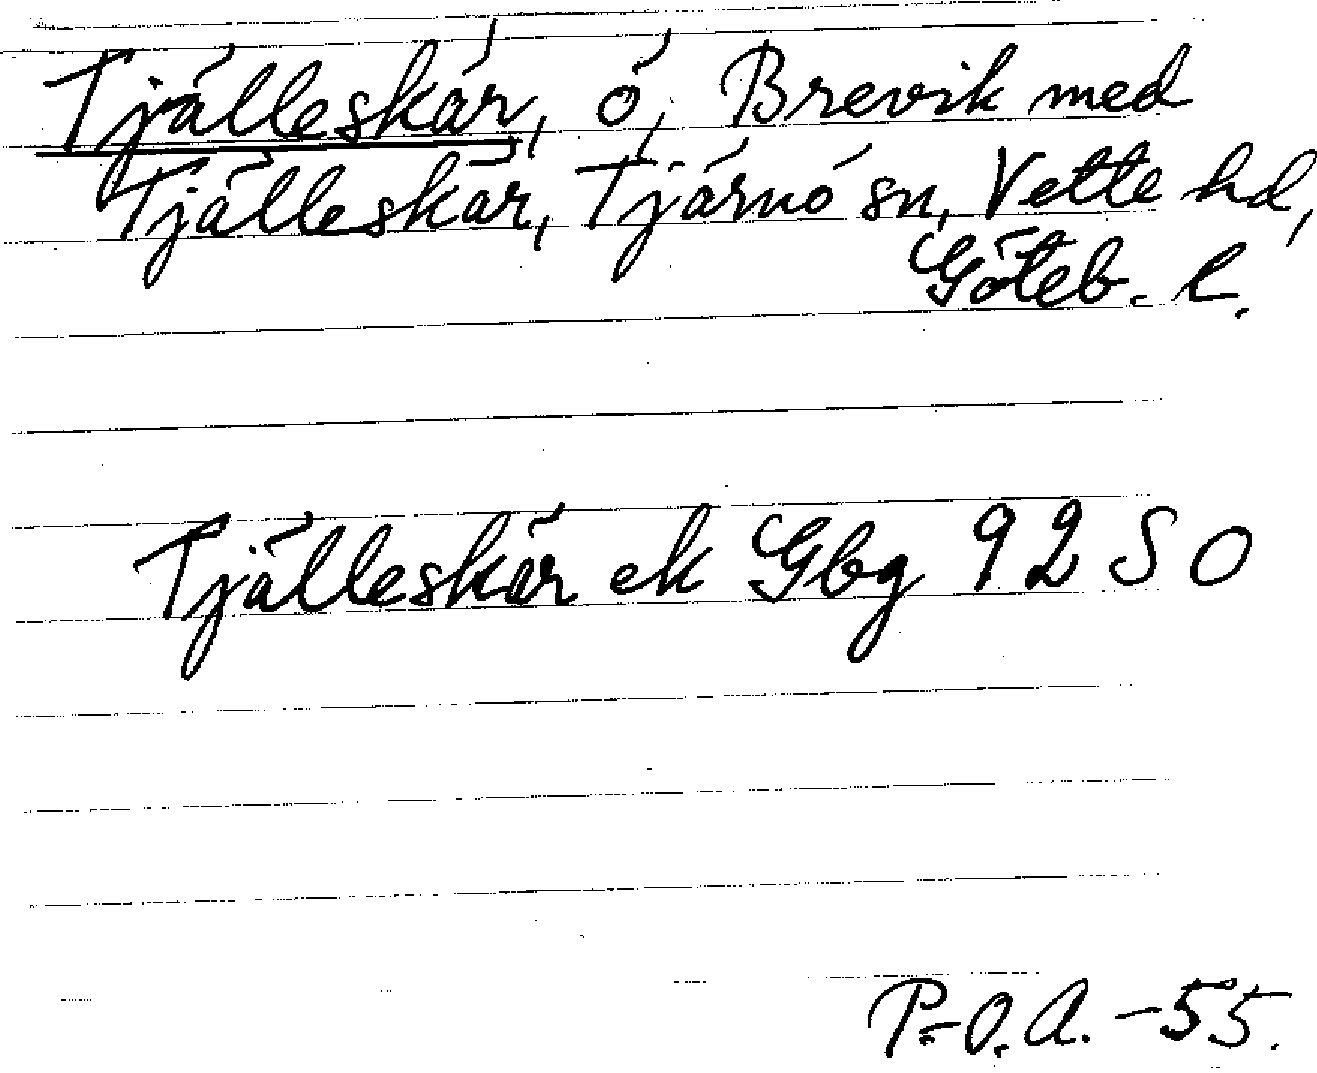 Tjälleskär, ö, Brevik med
Tjälleskär, Tjärnö sn, Vette hd,
Göteb. l.
Tjälleskär ek Gbg 92 SO
P-O.A. -55.